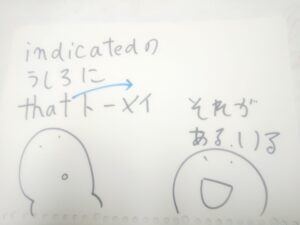 indicatedの
うしろに
thatトーメイ
それが
ある.いる